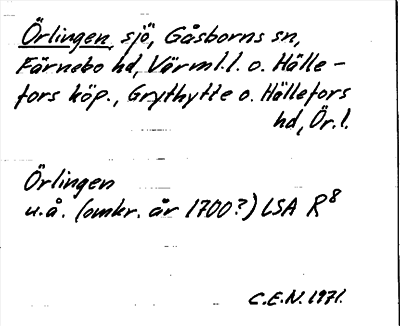 Örlingen, sjö, Gåsborns sn,
Färnebo hd, Värml.l. o. Hälle-
fors köp., Grythytte o. Hällefors
hd, Ör.l.
Örlingen
u.å. (omkr. år 1700?) LSA R8
C.E.N. 1971.